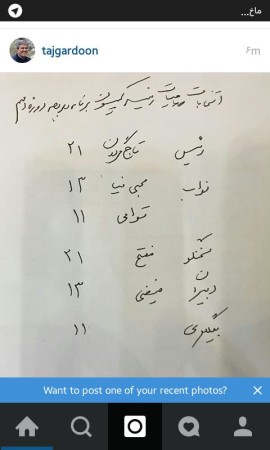 ماخ...
tajgardoon
۶m
انتخابات هیات رئیسه کمیسیون برنامه بودجه دوره دهم
رئیس تاجگردون ۲۱
نواب محبی نیا ۱۳
۱۱
سخنگو مفتح ۲۱
دبیران فیضی ۱۳
بیگلری ۱۱
Want to post one of your recent photos?